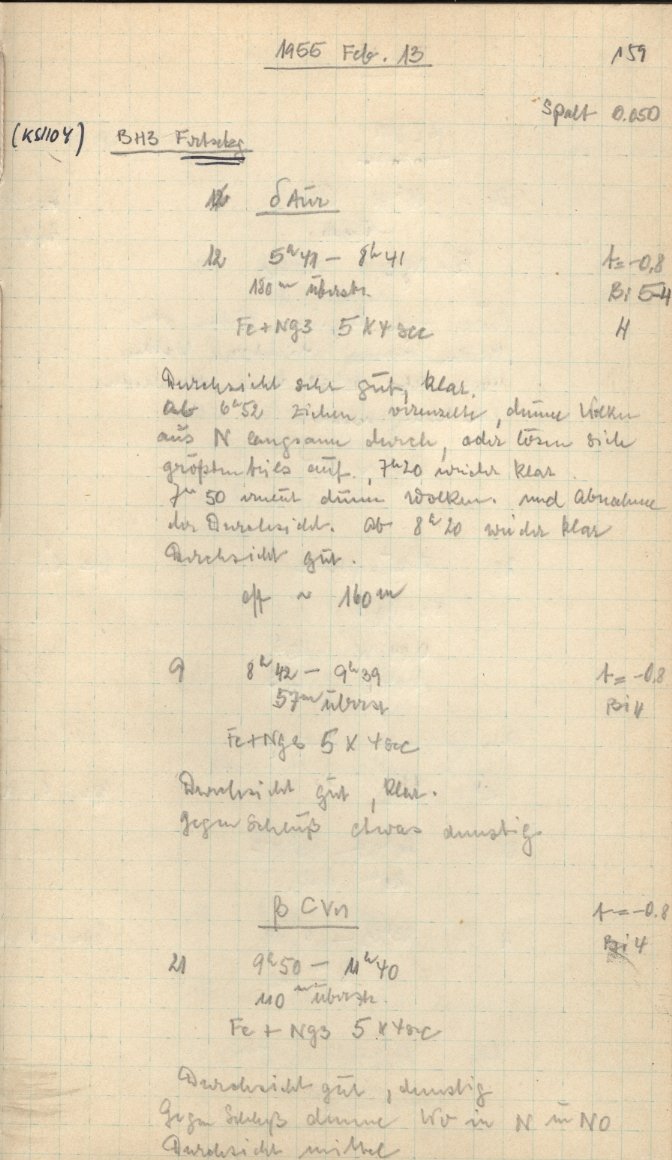 1955 Feb. 13 159
Spalt 0.050
BH3 Fortsetzg
δ Aur
12 5h41 – 8h41 t = -0,8
180m überstr. Bi 5-4
Fe+Ng3 5 x 4 sec 4
Durchsicht sehr gut, klar.
Ab 6h52 ziehen vereinzelte, dünne Wolken
aus N langsam durch, oder lösen sich
größtenteils auf, 7h20 wieder klar
7h50 erneut dünne Wolken und Abnahme
der Durchsicht. Ab 8h20 wieder klar
Durchsicht gut.
eff ~ 160m
9 8h42 – 9h39 t = -0.8
57m überstr Bi 4
Fe+Ng3 5 x 4 sec
Durchsicht gut, klar.
gegen Schluß etwas dunstig
β CVn t = -0.8
Bi 4
21 9h50 – 11h40
110m überstr.
Fe + Ng3 5 x 4 sec
Durchsicht gut, dunstig
Gegen Schluß dünne Wo in N u NO
Durchsicht mittel